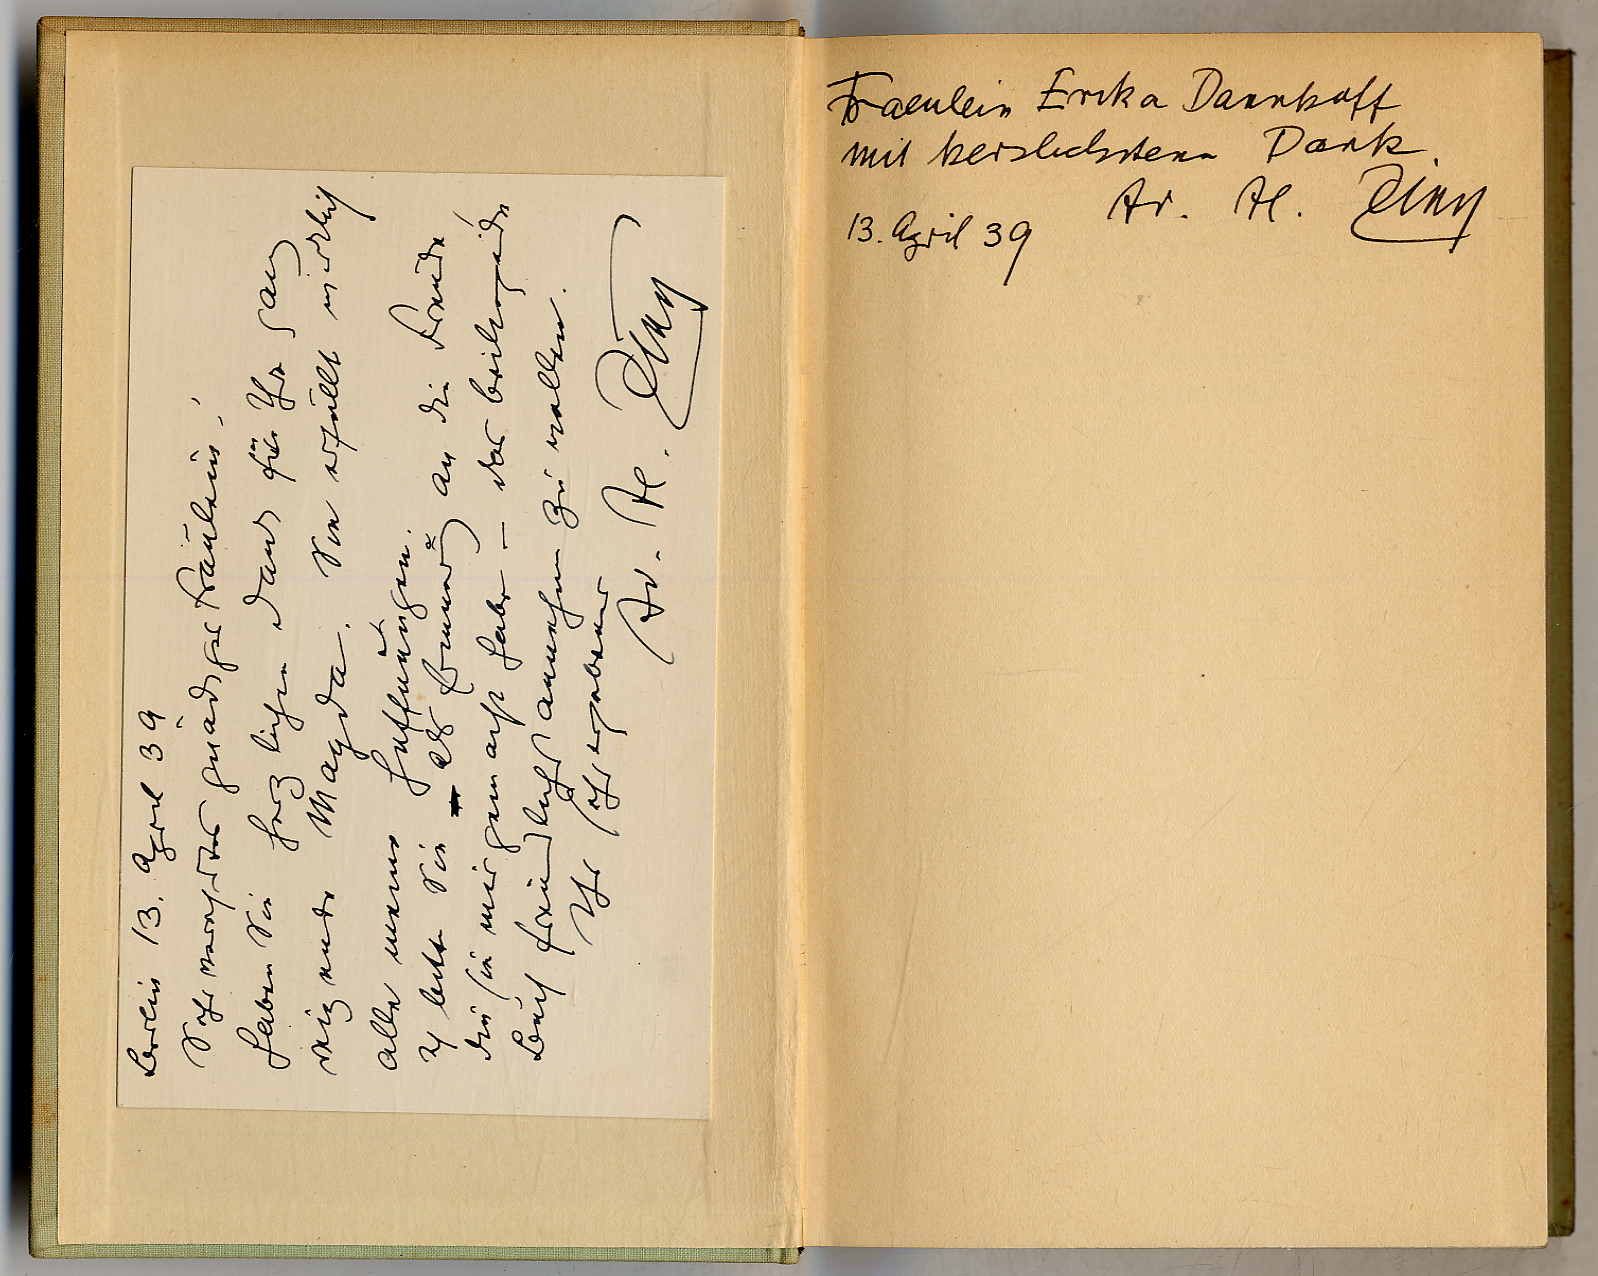 Berlin 13. April 39
Sehr verehrtes gnädges Fräulein!
Haben Sie herzlichen Dank für Ihre ganz
reizende Magda. Sie erfüllt wirklich
alle meine Hoffnungen.
Ich bitte Sie als Erinnerung an die Freude
die sie mir gemacht habe – das beiliegende
Buch freundlichst annehmen zu wollen.
Ihr sehr ergebener
Dr. H.
Fraeulein Erika Dannhoff
mit herzlichstem Dank.
Dr. H.
13. April 39